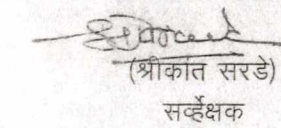 (श्रीकांत सरडे)
सर्व्हेक्षक